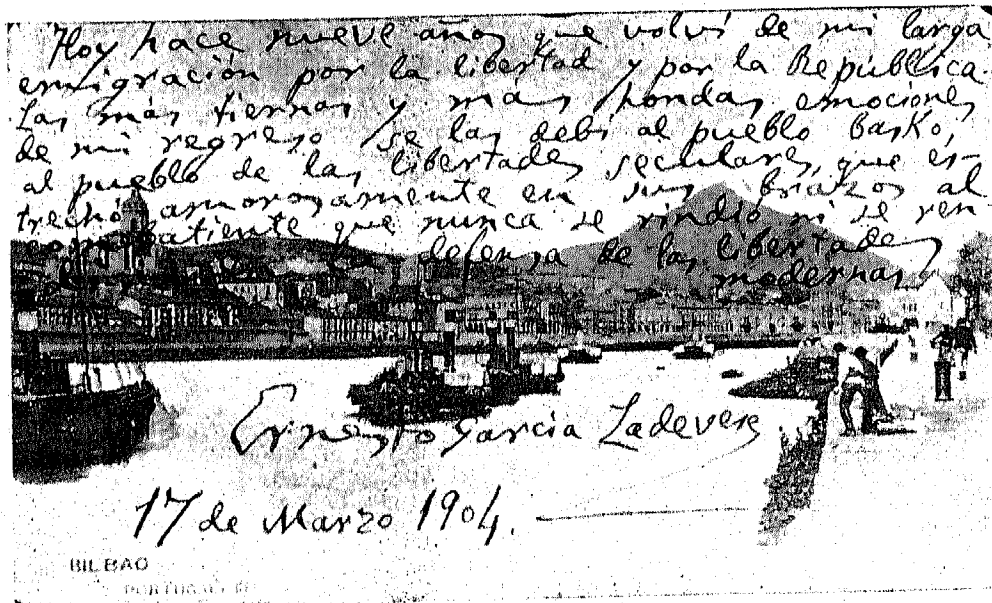 Hoy hace nueve años que volví de mi larga
emigración por la libertad y por la República.
Las más tiernas y mas hondas emociones
de mi regreso se las debí al pueblo basko,
al pueblo de las libertades seculares, que es-
trechó amorosamente en sus brazos al
combatiente que nunca se rindió ni se ren
defensa de las libertades
modernas
Ernesto García Ladevese
17 de Marzo 1904.
BILBAO
PORTUGALETE